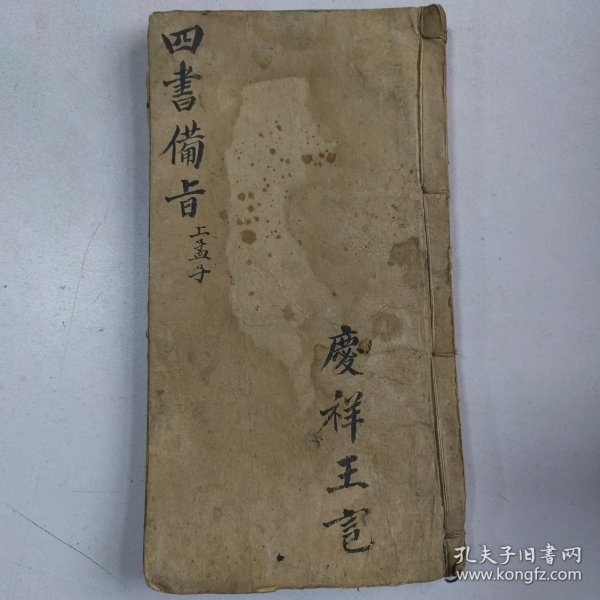 四書備旨
上孟子
慶祥王記
孔夫子旧书网
www.kongfz.com